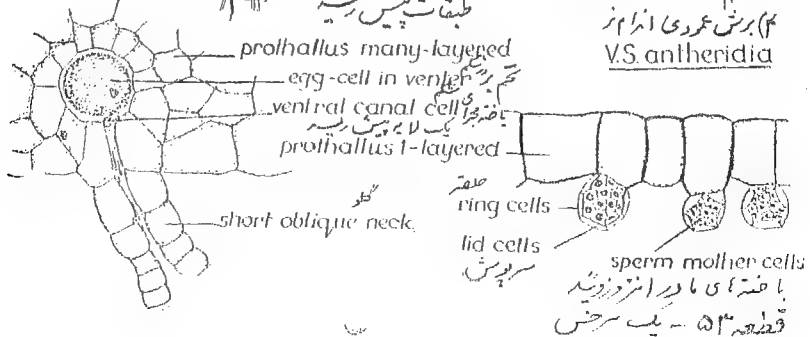 طبقات پیش رسته
۲) برش عمودی اندام نر
V.S. antheridia
prothallus many-layered
egg-cell in venter
تخم
ventral canal cell
یاخته مجرای
یک لایه پیش رسته
prothallus 1-layered
گلو
short oblique neck
حلقه
ring cells
lid cells
سرپوش
sperm mother cells
یاخته های مادر آنتروزوئید
قطعه ۵۳ - یک سرخس